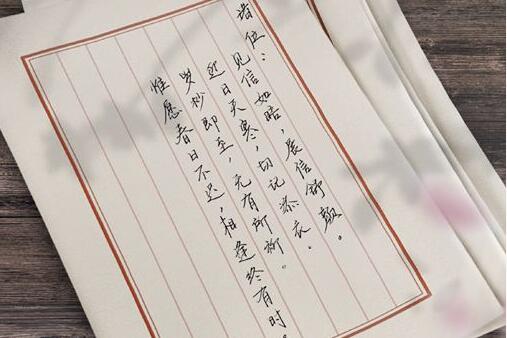 诸位：
见信如晤，展信舒颜。
近日天寒，切记添衣。
岁杪即至，无有所柳。
惟愿春日不迟，相逢终有时。